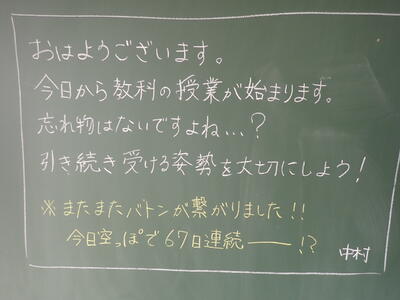 おはようございます。
今日から教科の授業が始まります。
忘れ物はないですよね...?
引き続き受ける姿勢を大切にしよう!
※またまたバトンが繋がりました!!
今日空っぽで67日連続――!?
中村